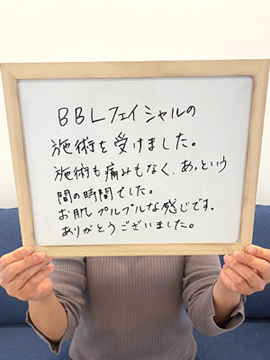 BBLフェイシャルの
施術を受けました。
施術も痛みもなく、あっという
間の時間でした。
お肌プルプルな感じです。
ありがとうございました。